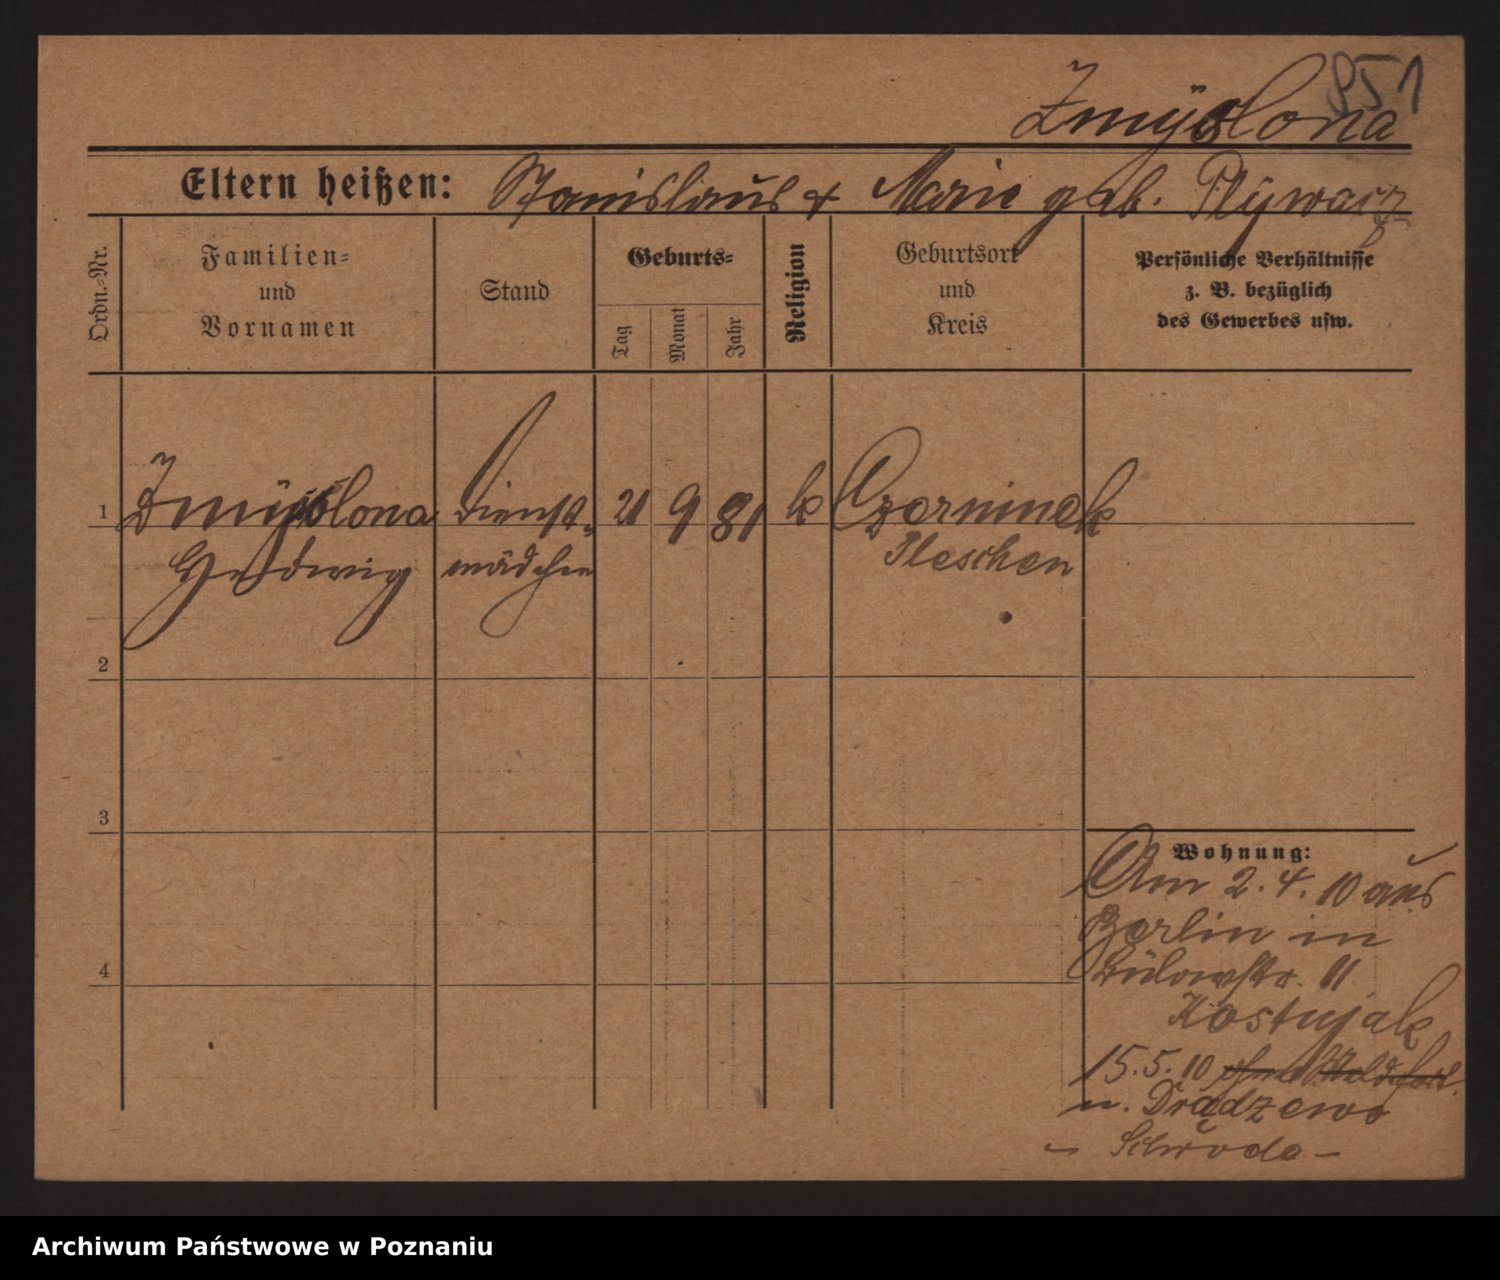 851
Zmÿslona
Eltern heißen: Stanislaus & Marie geb. Plÿwacz
Ordn.-Nr.
Familien-
und
Vornamen
Stand
Geburts-
Tag
Monat
Jahr
Religion
Geburtsort
und
Kreis
Persönliche Verhältnisse
z. B. bezüglich
des Gewerbes usw.
1 Zmÿslona Dienst- 21 9 81 k Czerninek
Hedwig mädchen Pleschen
2
3
4
Wohnung:
Am 2. 4. 10 aus
Berlin in
Bülowstr. 11
Kostujak
15. 5. 10 ohne
n. Drądzewo
- Schroda -
Archiwum Państwowe w Poznaniu